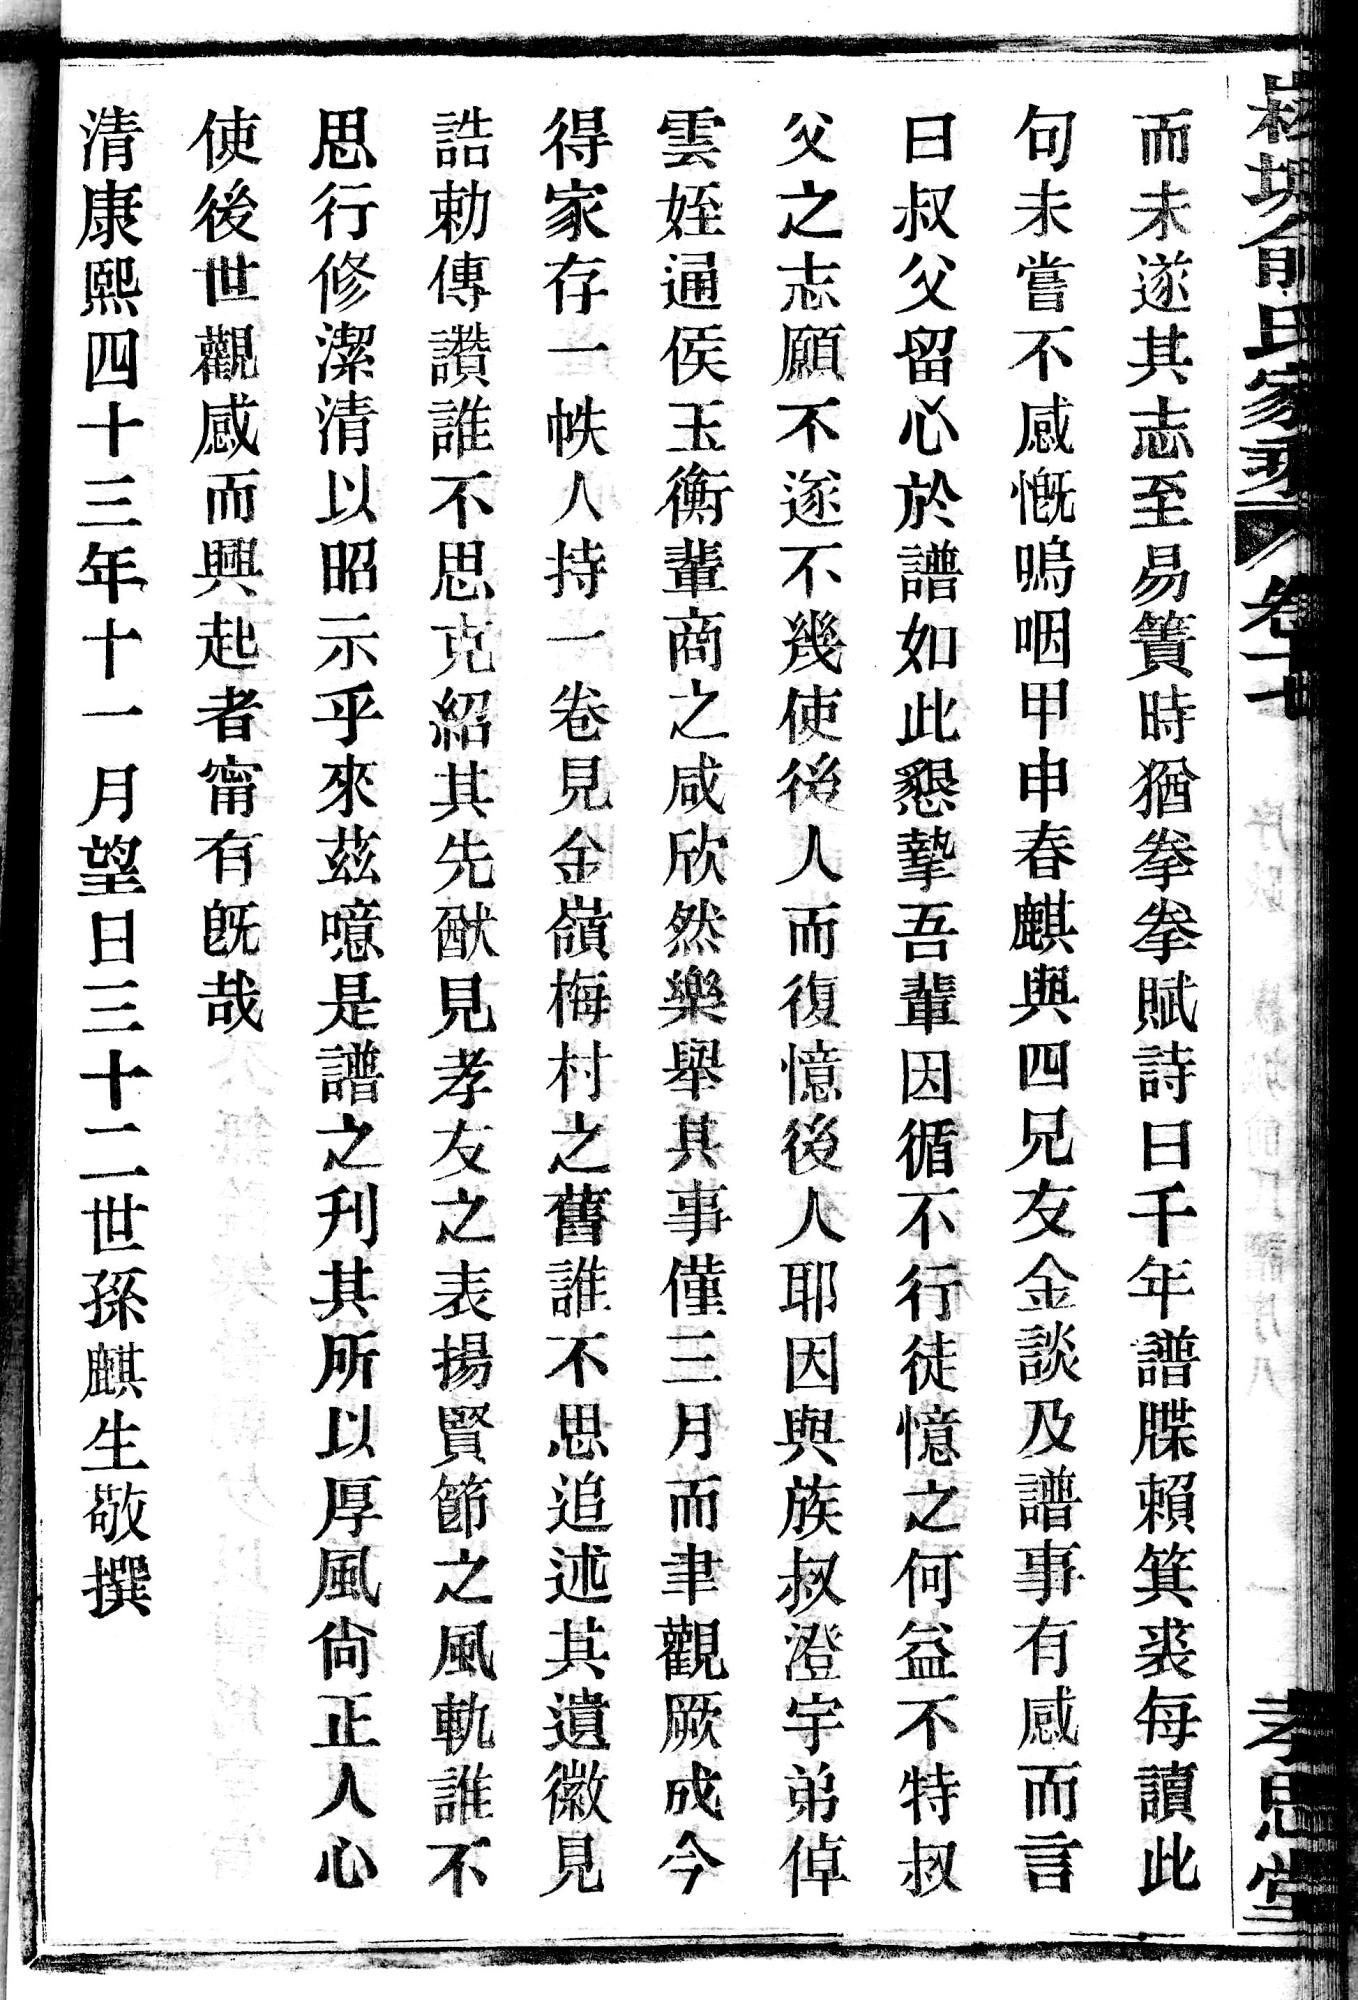 俞氏家乘 卷十七 孝思堂
而未遂其志至易簀時猶拳拳賦詩曰千年譜牒賴箕裘每讀此
句未嘗不感慨嗚咽甲申春麒與四兄友金談及譜事有感而言
曰叔父留心於譜如此懇摯吾輩因循不行徒憶之何益不特叔
父之志願不遂不幾使後人而復憶後人耶因與族叔澄宇弟倬
雲姪通侯玉衡輩商之咸欣然樂舉其事僅三月而聿觀厥成今
得家存一帙人持一卷見金嶺梅村之舊誰不思追述其遺徽見
誥勅傳讚誰不思克紹其先猷見孝友之表揚賢節之風軌誰不
思行修潔清以昭示乎來茲噫是譜之刊其所以厚風尙正人心
使後世觀感而興起者甯有旣哉
清康熙四十三年十一月望日三十二世孫麒生敬撰